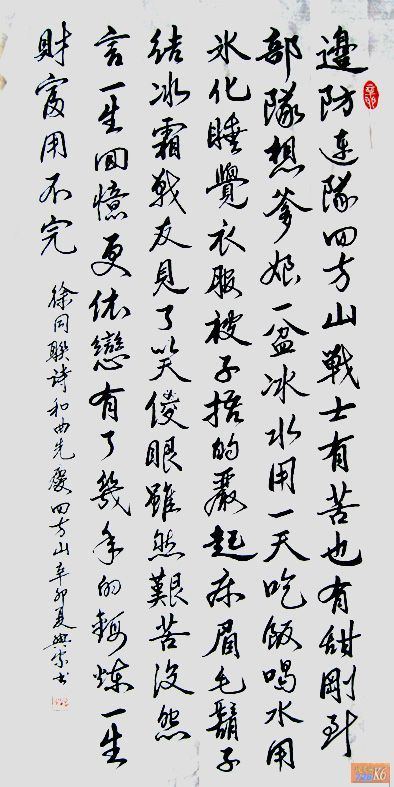 邊防連隊四方山戰士有苦也有甜剛到
部隊想爹娘一盆冰水用一天吃飯喝水用
氷化睡覺衣服被子捂的嚴起床眉毛鬍子
結冰霜戰友見了笑傻眼雖然艱苦没怨
言一生回憶更依戀有了幾年的煉一生
財富用不完
徐同聯詩和曲先慶四方山辛卯夏書
辛卯
K6